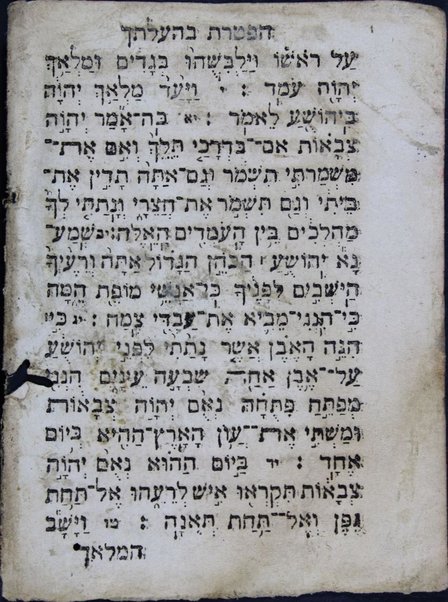 הפטרת בהעלתך
עַל רֹאשׁוֹ וַיַּלְבִּשֻׁהוּ בְּגָדִים וּמַלְאַךְ
יְהוָה עֹמֵד : י וַיָּעַד מַלְאַךְ יְהוָה
בִּיהוֹשֻׁעַ לֵאמֹר : יא כֹּה־אָמַר יְהוָה
צְבָאוֹת אִם־בִּדְרָכַי תֵּלֵךְ וְאִם אֶת־
מִשְׁמַרְתִּי תִשְׁמֹר וְגַם־אַתָּה תָּדִין אֶת־
בֵּיתִי וְגַם תִּשְׁמֹר אֶת־חֲצֵרָי וְנָתַתִּי לְךָ
מַהְלְכִים בֵּין הָעֹמְדִים הָאֵלֶּה : יב שְׁמַע־
נָא יְהוֹשֻׁעַ הַכֹּהֵן הַגָּדוֹל אַתָּה וְרֵעֶיךָ
הַיֹּשְׁבִים לְפָנֶיךָ כִּי־אַנְשֵׁי מוֹפֵת הֵמָּה
כִּי־הִנְנִי מֵבִיא אֶת־עַבְדִּי צֶמַח : יג כִּי
הִנֵּה הָאֶבֶן אֲשֶׁר נָתַתִּי לִפְנֵי יְהוֹשֻׁעַ
עַל־אֶבֶן אַחַת שִׁבְעָה עֵינָיִם הִנְנִי
מְפַתֵּחַ פִּתֻּחָהּ נְאֻם יְהוָה צְבָאוֹת
וּמַשְׁתִּי אֶת־עֲוֹן הָאָרֶץ־הַהִיא בְּיוֹם
אֶחָד : יד בַּיּוֹם הַהוּא נְאֻם יְהוָה
צְבָאוֹת תִּקְרְאוּ אִישׁ לְרֵעֵהוּ אֶל־תַּחַת
גֶּפֶן וְאֶל־תַּחַת תְּאֵנָה : טו וַיָּשָׁב
המלאך